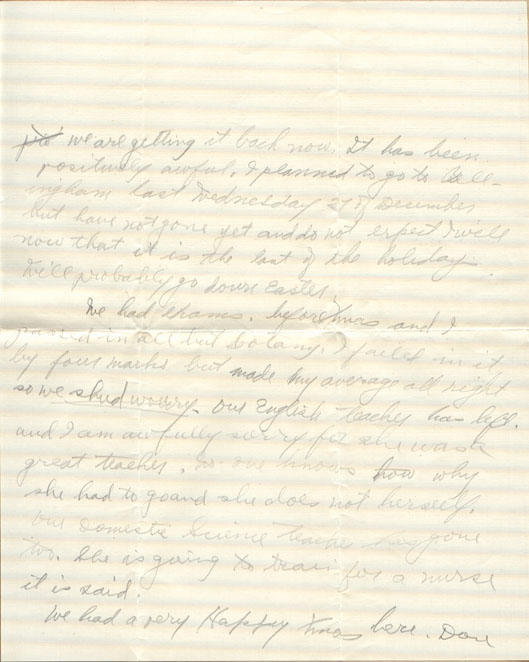 we are getting it back now. It has been
positively awful. I planned to go to Bell-
ingham last Wednesday 27 of December
but have not gone yet and do not expect I will
now that it is the last of the holiday.
Will probably go down Easter.
We had exams. before Xmas and I
passed in all but botany. I failed in it
by four marks but made my average all right
so we shud wourry. Our English teacher has left.
and I am awfully sorry for she was a
great teacher. No one knows how why
she had to go and she does not herself.
Our Domestic Science teacher has gone
too. She is going to train for a nurse
it is said.
We had a very Happy Xmas here. Don